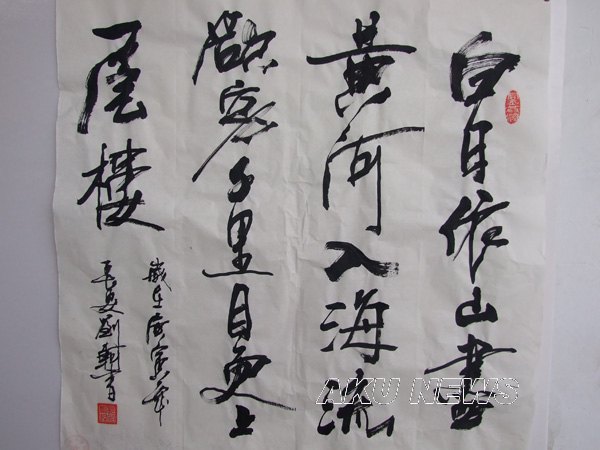 白日依山盡
黃河入海流
欲窮千里目更上
一層樓
歲在庚寅年
夏劉
AKU NEWS